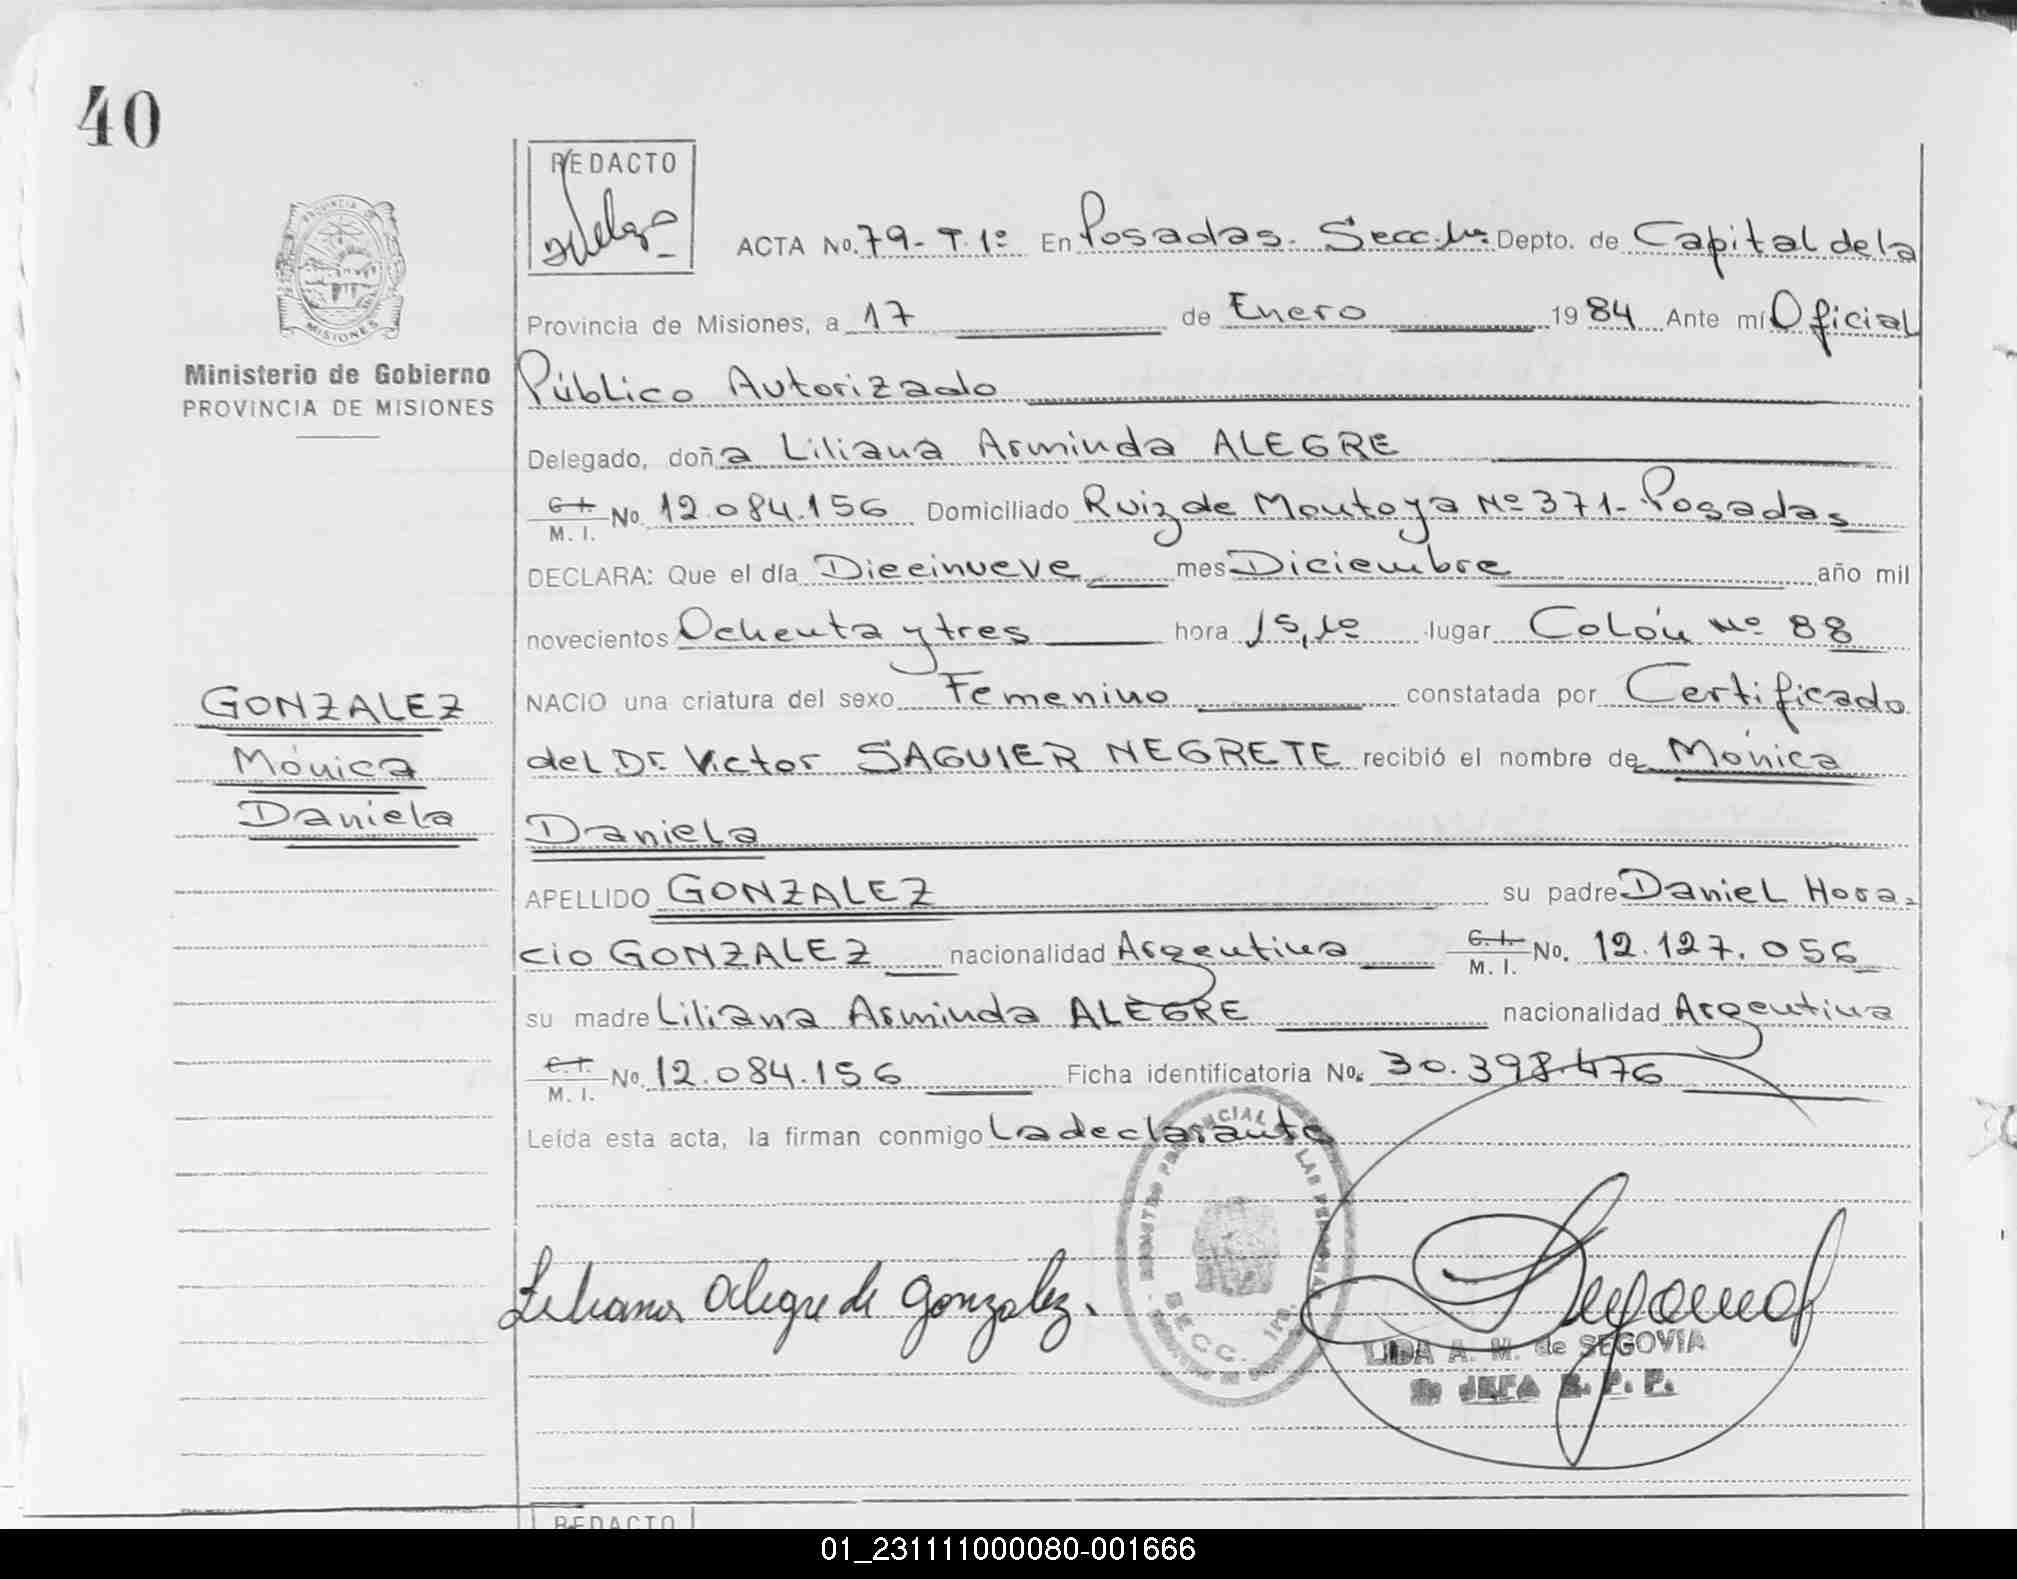 40
REDACTO
ACTA No. 79- T. 1º En Posadas. Secc. 1ra. Depto. de Capital de la
Provincia de Misiones, a 17 de Enero 1984 Ante mí Oficial
Público Autorizado
PROVINCIA DE MISIONES
Ministerio de Gobierno
PROVINCIA DE MISIONES
Delegado, doña Liliana Arminda ALEGRE
C.I. M. I. No. 12.084.156 Domiciliado Ruiz de Montoya Nº 371- Posadas
DECLARA: Que el día Diecinueve mes Diciembre año mil
novecientos Ochenta y tres hora 15,10 lugar Colón Nº 88
NACIO una criatura del sexo Femenino constatada por Certificado
GONZALEZ
Mónica
Daniela
del Dr. Victor SAGUIER NEGRETE recibió el nombre de Mónica
Daniela
APELLIDO GONZALEZ su padre Daniel Hora-
cio GONZALEZ nacionalidad Argentina C.I. M. I. No. 12.127.056
su madre Liliana Arminda ALEGRE nacionalidad Argentina
C.I. M. I. No. 12.084.156 Ficha identificatoria No. 30.398.476
Leída esta acta, la firman conmigo la declarante
Liliana Alegre de Gonzalez.
SECC. 1ra.
LIDA A. M. de SEGOVIA
JEFA R. P. P.
REDACTO
01_231111000080-001666